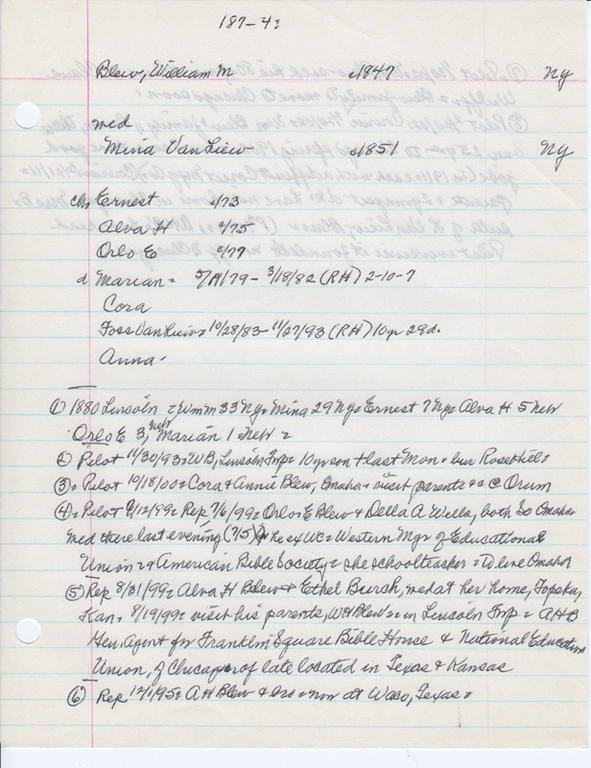 187-43
Blew, William M c1847 Ny
med
Mina VanLiew c1851 Ny
ch: Ernest c/73
Alva H c/75
Orlo E c/77
d Marian = 5/11/79 - 3/18/82 (RH) 2-10-7
Cora
Foss VanLiew = 10/28/83 - 11/27/93 (RH) 10yr 29d.
Anna
① 1880 Lincoln = Wm M 33 Ny = Mina 29 Ny = Ernest 7 Ny = Alva H 5 Neb
Orlo E 3, Neb Marian 1 = Neb =
② Pilot 11/30/93 = WB, Lincoln Tnp = 10 yr son + last Mon = bur Rosehill =
③ = Pilot 10/18/00 = Cora & Annie Blew, Omaha = visit parents &c @ Orum
④ = Pilot 7/12/99 = Rep 7/6/99 = Orlo E Blew & Della A Wells, both So Omaha
med there last evening (7/5) = he ex WC = Western Mgr of Educational
Union & American Bible Society = she schoolteacher = to live Omaha
⑤ Rep 8/31/99 = Alva H Blew & Ethel Burch, med at her home, Topeka,
Kan = 8/19/99 = visit his parents, WH Blew = in Lincoln Tnp = AHB
Gen. Agent for Franklin Square Bible House & National Education
Union, of Chicago = of late located in Texas & Kansas
⑥ Rep 12/1/95 = AH Blew & bro = now at Waco, Texas =